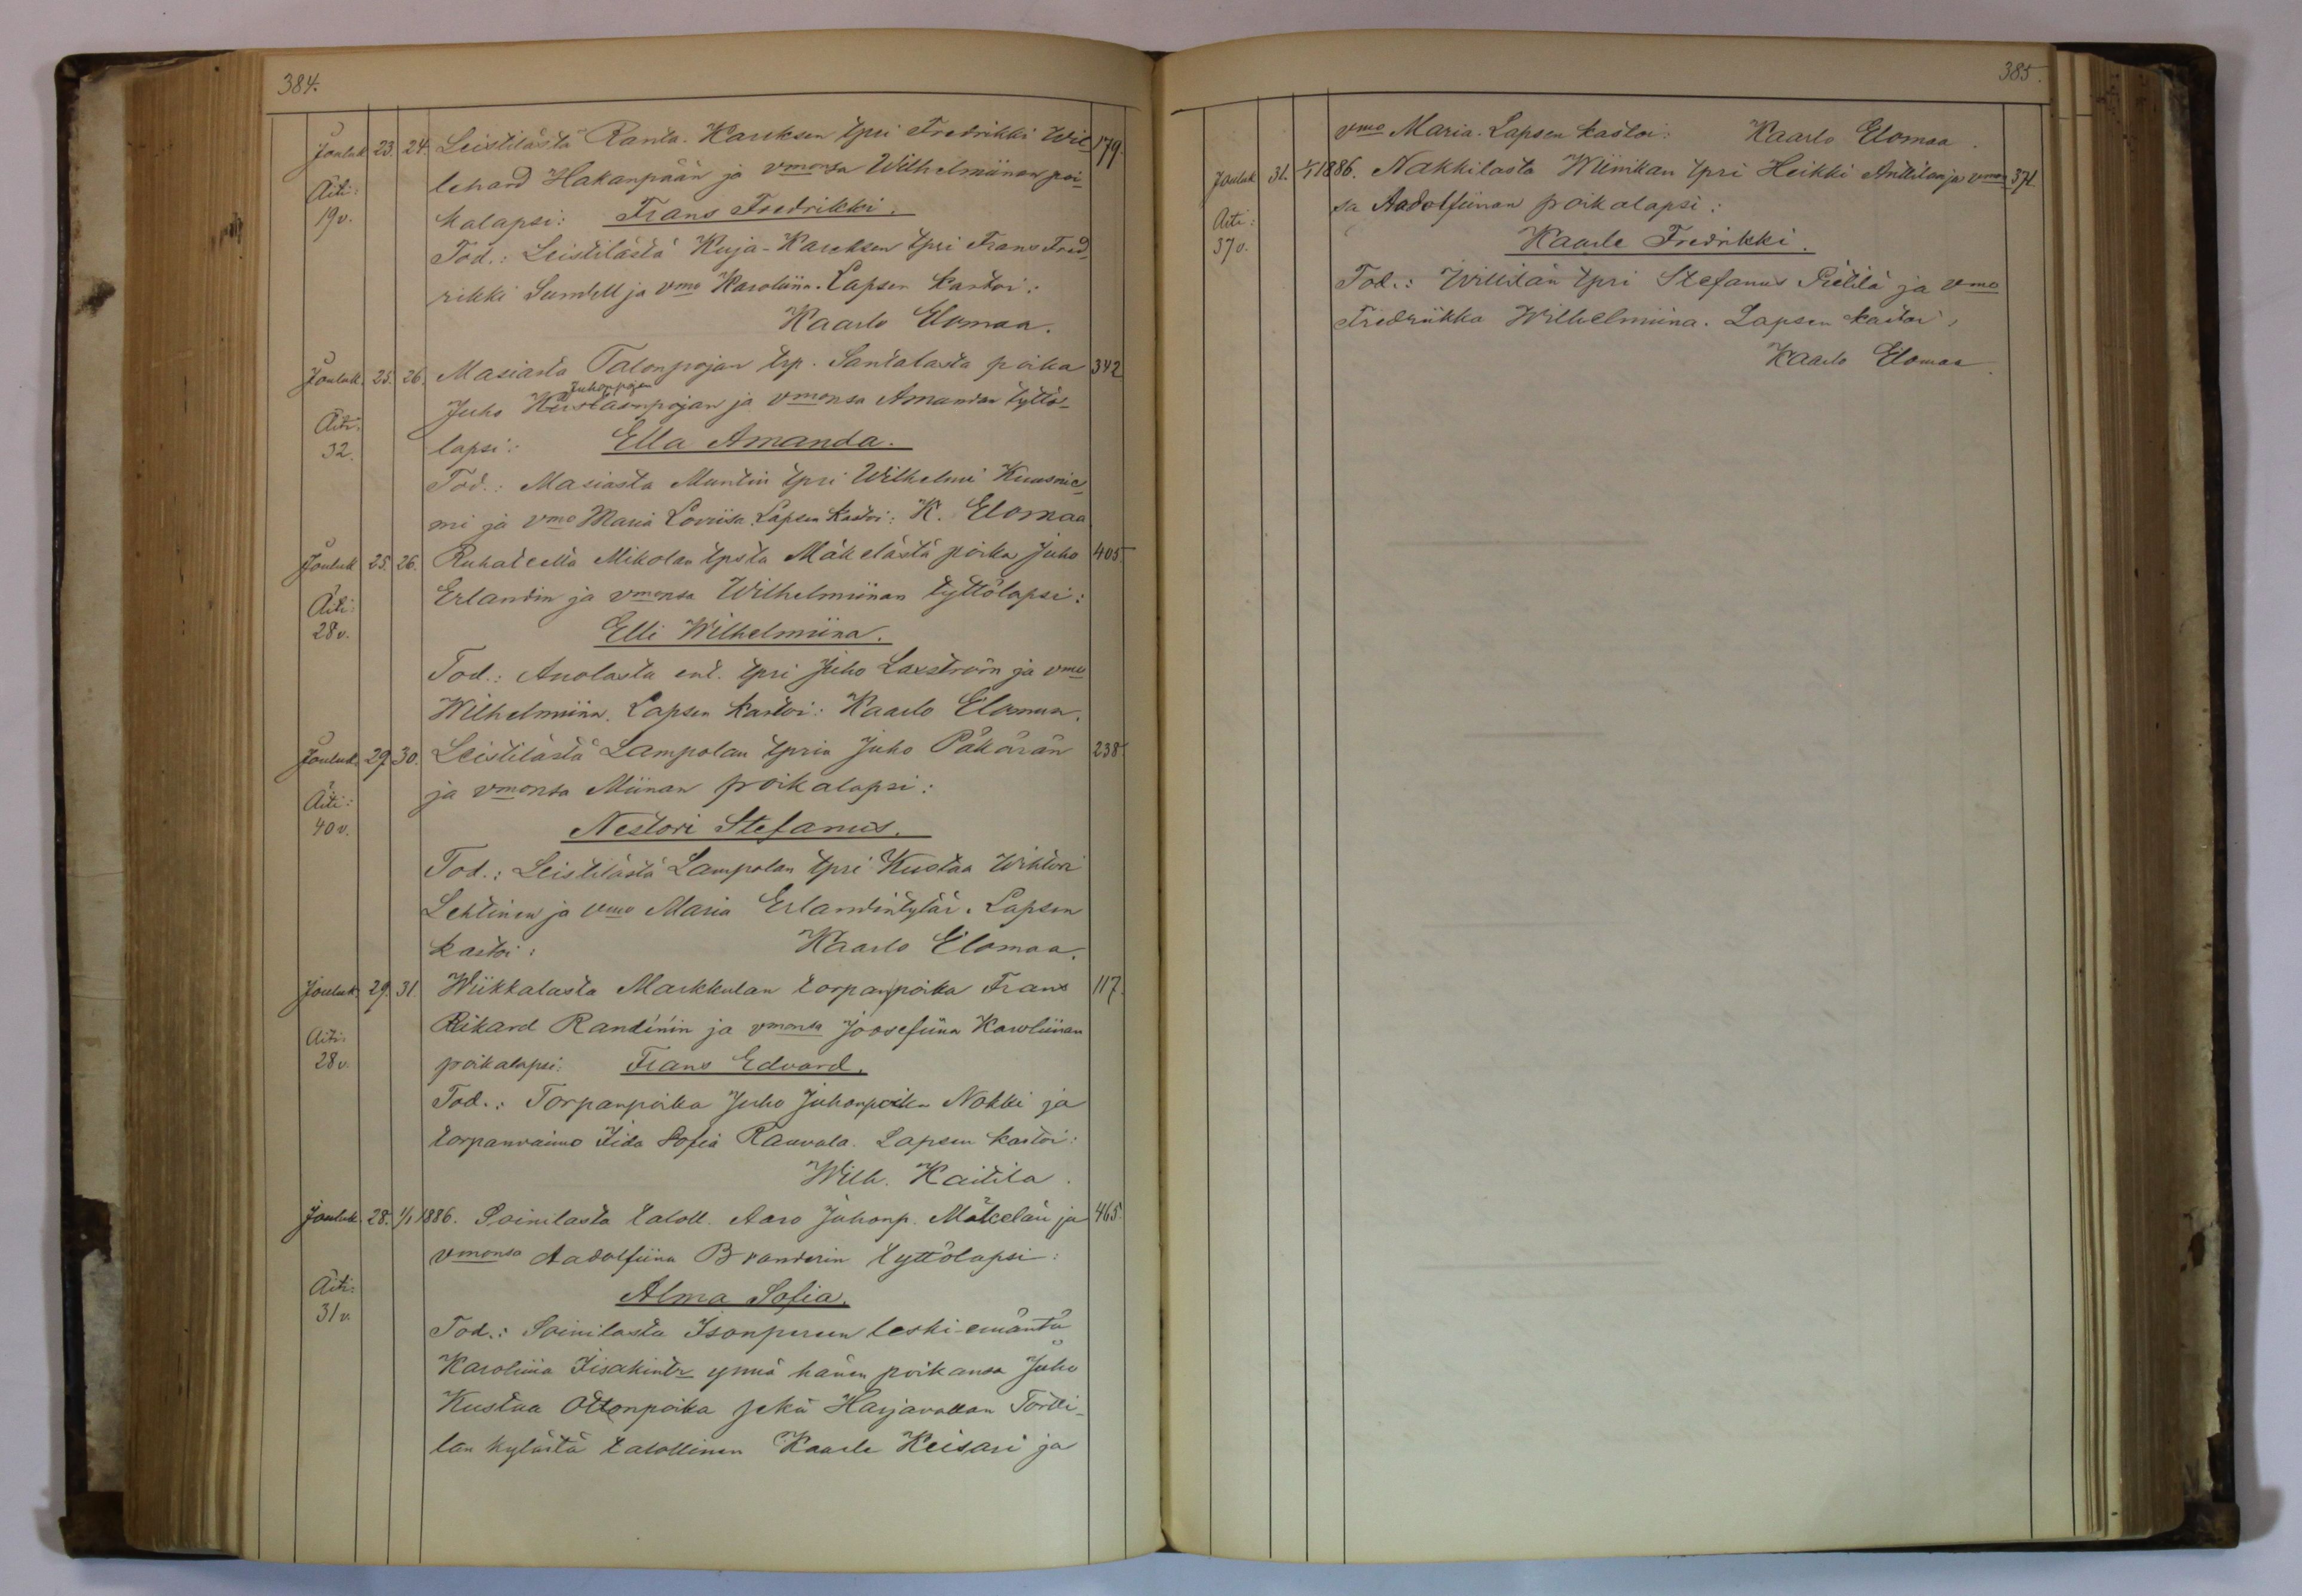 384.
Jouluk 23. 24. Leistilästä Ranta-Karuksen tpri Fredrikki Wil 179.
Äiti: lehard Hakanpään ja vmonsa Wilhelmiinan poi-
19 v. kalapsi: Frans Fredrikki.
Tod.: Leistilästä Kuja-Karuksen tpri Frans Fred-
rikki Sundell ja vmo Karoliina. Lapsen kastoi:
Kaarlo Elomaa.
Jouluk. 25. 26. Masiasta Talonpojan trp. Santalasta poika 342
Juhonpojan
Juho Kustaanpojan ja vmonsa Amandan tyttö-
Äiti:
32. lapsi: Ella Amanda.
Tod.: Masiasta Muntin tpri Wilhelmi Kuusnie-
mi ja vmo Maria Loviisa. Lapsen kastoi: K. Elomaa
Jouluk 25. 26. Ruhateellä Mikolan tpsta Mäkelästä poika Juho 405.
Äiti: Erlandin ja vmonsa Wilhelmiinan tyttölapsi:
28 v. Elli Wilhelmiina.
Tod.: Anolasta ent. tpri Juho Laxström ja vmo
Wilhelmiina. Lapsen kastoi: Kaarlo Elomaa.
Jouluk. 29. 30. Leistilästä Lampolan tprin Juho Päkärän 238
Äiti: ja vmonsa Miinan poikalapsi:
40 v. Nestori Stefanus.
Tod.: Leistilästä Lampolan tpri Kustaa Wihtori
Lehtinen ja vmo Maria Erlandintytär. Lapsen
kastoi: Kaarlo Elomaa.
Jouluk 29. 31. Wiikkalasta Markkulan torpanpoika Frans 117.
Äiti: Rikard Randinin ja vmonsa Joosefiina Karoliinan
28 v. poikalapsi: Frans Edvard.
Tod.: Torpanpoika Juho Juhonpoika Nokki ja
torpanvaimo Iida Sofia Rauvala. Lapsen kastoi:
Wilh. Kaitila.
Jouluk. 28. 1/1 1886. Soinilasta taloll. Aaro Juhonp. Mäkelän ja 465
vmonsa Aadolfiina Branderin tyttölapsi:
Äiti: Alma Sofia.
31 v.
Tod.: Soinilasta Isonpereen leski-emäntä
Karoliina Iisakintr ynnä hänen poikansa Juho
Kustaa Ottonpoika sekä Harjavallan Tortti-
lan kylästä talollinen Kaarle Keisari ja
385.
vmo Maria. Lapsen kastoi: Kaarlo Elomaa.
Jouluk 31. 1/1 1886. Nakkilasta Wiinikan tpri Heikki Anttilan ja vmon 371
Äiti: sa Aadolfiinan poikalapsi:
37 v. Kaarle Fredrikki.
Tod.: Willilän tpri Stefanus Pietilä ja vmo
Fredriikka Wilhelmiina. Lapsen kastoi,
Kaarlo Elomaa.